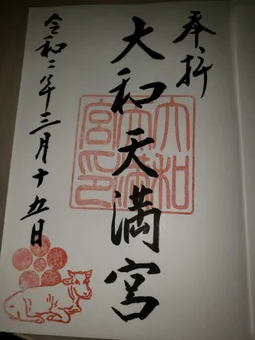 奉拝
大和天満宮
大和天満宮印
令和二年三月十五日